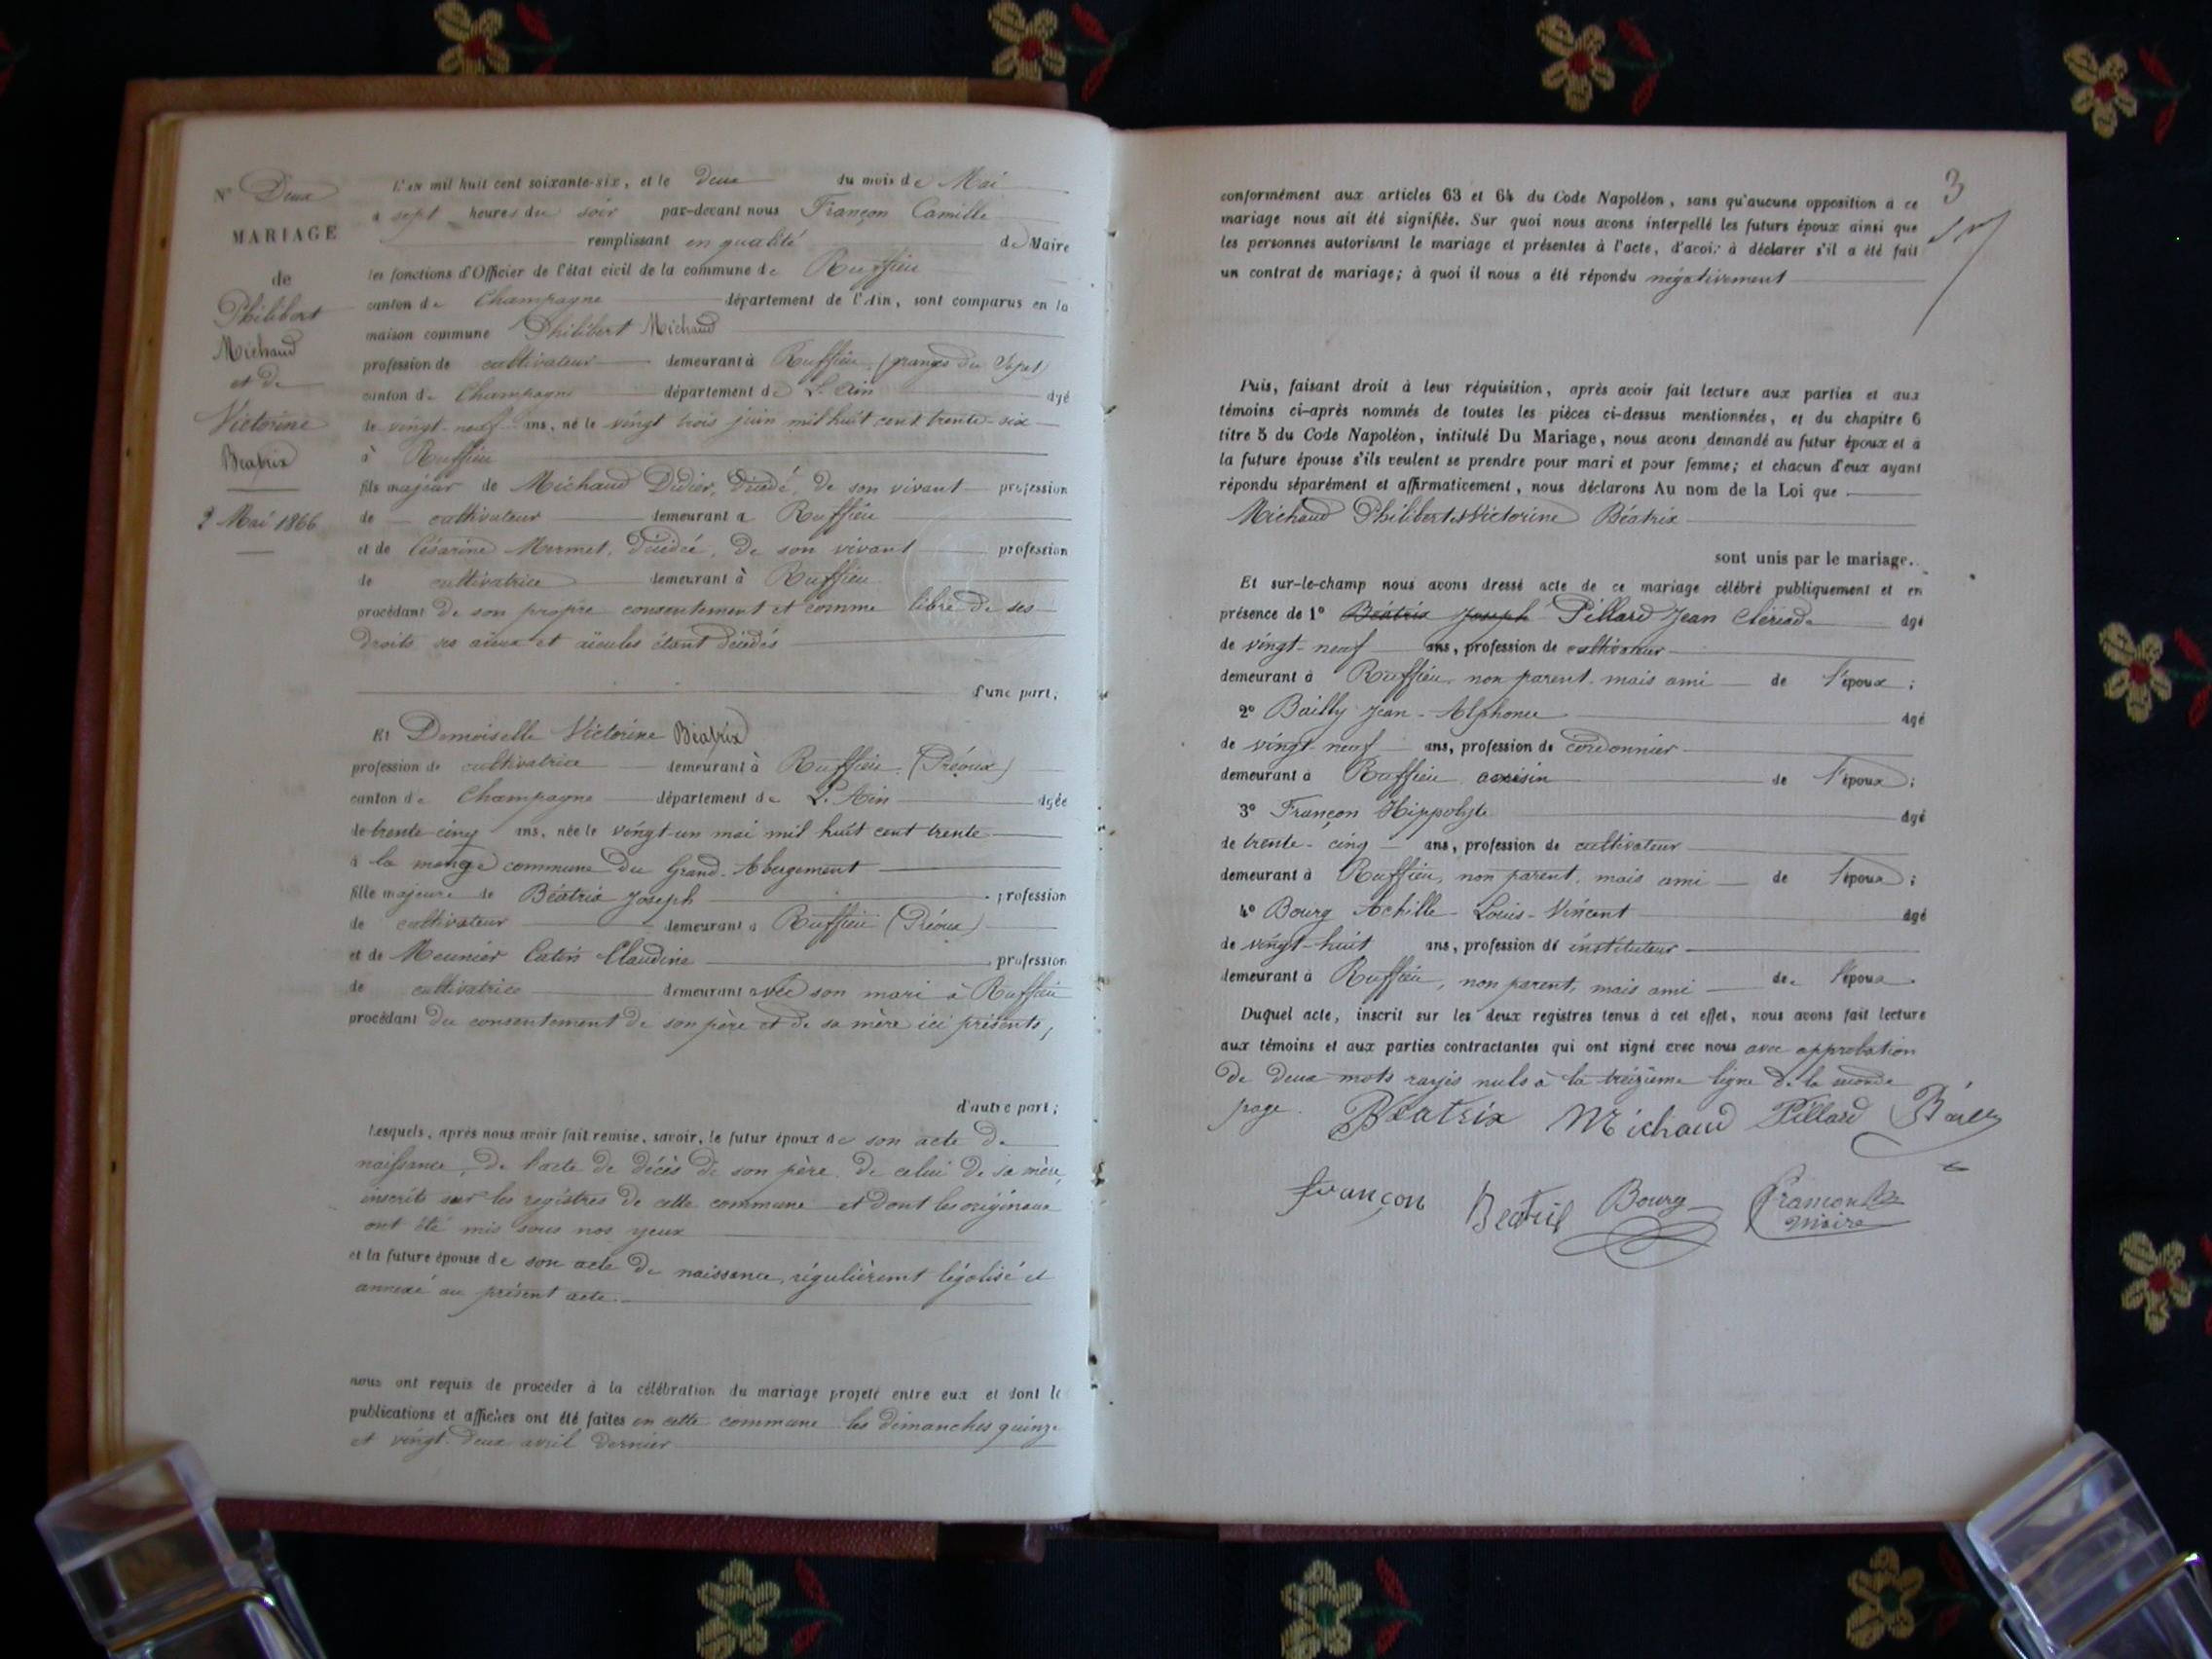 N° Deux
MARIAGE
de
Philibert
Michaud
et de
Victorine
Béatrix
2 Mai 1866
L'an mil huit cent soixante-six, et le deux du mois de Mai
à sept heures du soir par-devant nous Françon Camille
remplissant en qualité de Maire
les fonctions d'Officier de l'état civil de la commune de Ruffieu
canton de Champagne département de l'Ain, sont comparus en la
maison commune Philibert Michaud
profession de cultivateur demeurant à Ruffieu (granges du
canton de Champagne département de L'Ain âgé
de vingt-neuf ans, né le vingt trois juin mil huit cent trente-six
à Ruffieu
fils majeur de Michaud Didier, décédé, de son vivant profession
de cultivateur demeurant à Ruffieu
et de Césarine Mermet, décédée, de son vivant profession
de cultivatrice demeurant à Ruffieu
procédant de son propre consentement et comme libre de ses
droits ses aïeux et aïeules étant décédés
d'une part,
Et Demoiselle Victorine Béatrix
profession de cultivatrice demeurant à Ruffieu (Préoux)
canton de Champagne département de L'Ain âgée
de trente cinq ans, née le vingt-un mai mil huit cent trente
à la commune du Grand-Abergement
fille majeure de Béatrix Joseph profession
de cultivateur demeurant à Ruffieu (Préoux)
et de Meunier Catin Claudine profession
de cultivatrice demeurant avec son mari à Ruffieu
procédant du consentement de son père et de sa mère ici présents,
d'autre part;
Lesquels, après nous avoir fait remise, savoir, le futur époux de son acte de
naissance, de l'acte de décès de son père, de celui de sa mère,
inscrits sur les registres de cette commune et dont les originaux
ont été mis sous nos yeux
et la future épouse de son acte de naissance, régulièremt légalisé et
annexé au présent acte.
nous ont requis de procéder à la célébration du mariage projeté entre eux et dont le
publications et affiches ont été faites en cette commune les dimanches quinze
et vingt-deux avril dernier
3
conformément aux articles 63 et 64 du Code Napoléon, sans qu'aucune opposition à ce
mariage nous ait été signifiée. Sur quoi nous avons interpellé les futurs époux ainsi que
les personnes autorisant le mariage et présentes à l'acte, d'avoir à déclarer s'il a été fait
un contrat de mariage; à quoi il nous a été répondu négativement
Puis, faisant droit à leur réquisition, après avoir fait lecture aux parties et aux
témoins ci-après nommés de toutes les pièces ci-dessus mentionnées, et du chapitre 6
titre 5 du Code Napoléon, intitulé Du Mariage, nous avons demandé au futur époux et à
la future épouse s'ils veulent se prendre pour mari et pour femme; et chacun d'eux ayant
répondu séparément et affirmativement, nous déclarons Au nom de la Loi que
Michaud Philibert et Victorine Béatrix
sont unis par le mariage.
Et sur-le-champ nous avons dressé acte de ce mariage célébré publiquement et en
présence de 1° Béatrix Joseph Pillard Jean Clériade âgé
de vingt-neuf ans, profession de cultivateur
demeurant à Ruffieu, non parent, mais ami de l'époux;
2° Bailly Jean-Alphonse âgé
de vingt-neuf ans, profession de cordonnier
demeurant à Ruffieu, cousin de l'époux;
3° Françon Hippolyte âgé
de trente-cinq ans, profession de cultivateur
demeurant à Ruffieu, non parent, mais ami de l'époux;
4° Bourg Achille-Louis-Vincent âgé
de vingt-huit ans, profession de instituteur
demeurant à Ruffieu, non parent, mais ami de l'époux
Duquel acte, inscrit sur les deux registres tenus à cet effet, nous avons fait lecture
aux témoins et aux parties contractantes qui ont signé avec nous avec approbation
de deux mots rayés nuls à la treizième ligne de la seconde
page. Béatrix Michaud Pillard Bailly
françon Beatrix Bourg Françon
maire